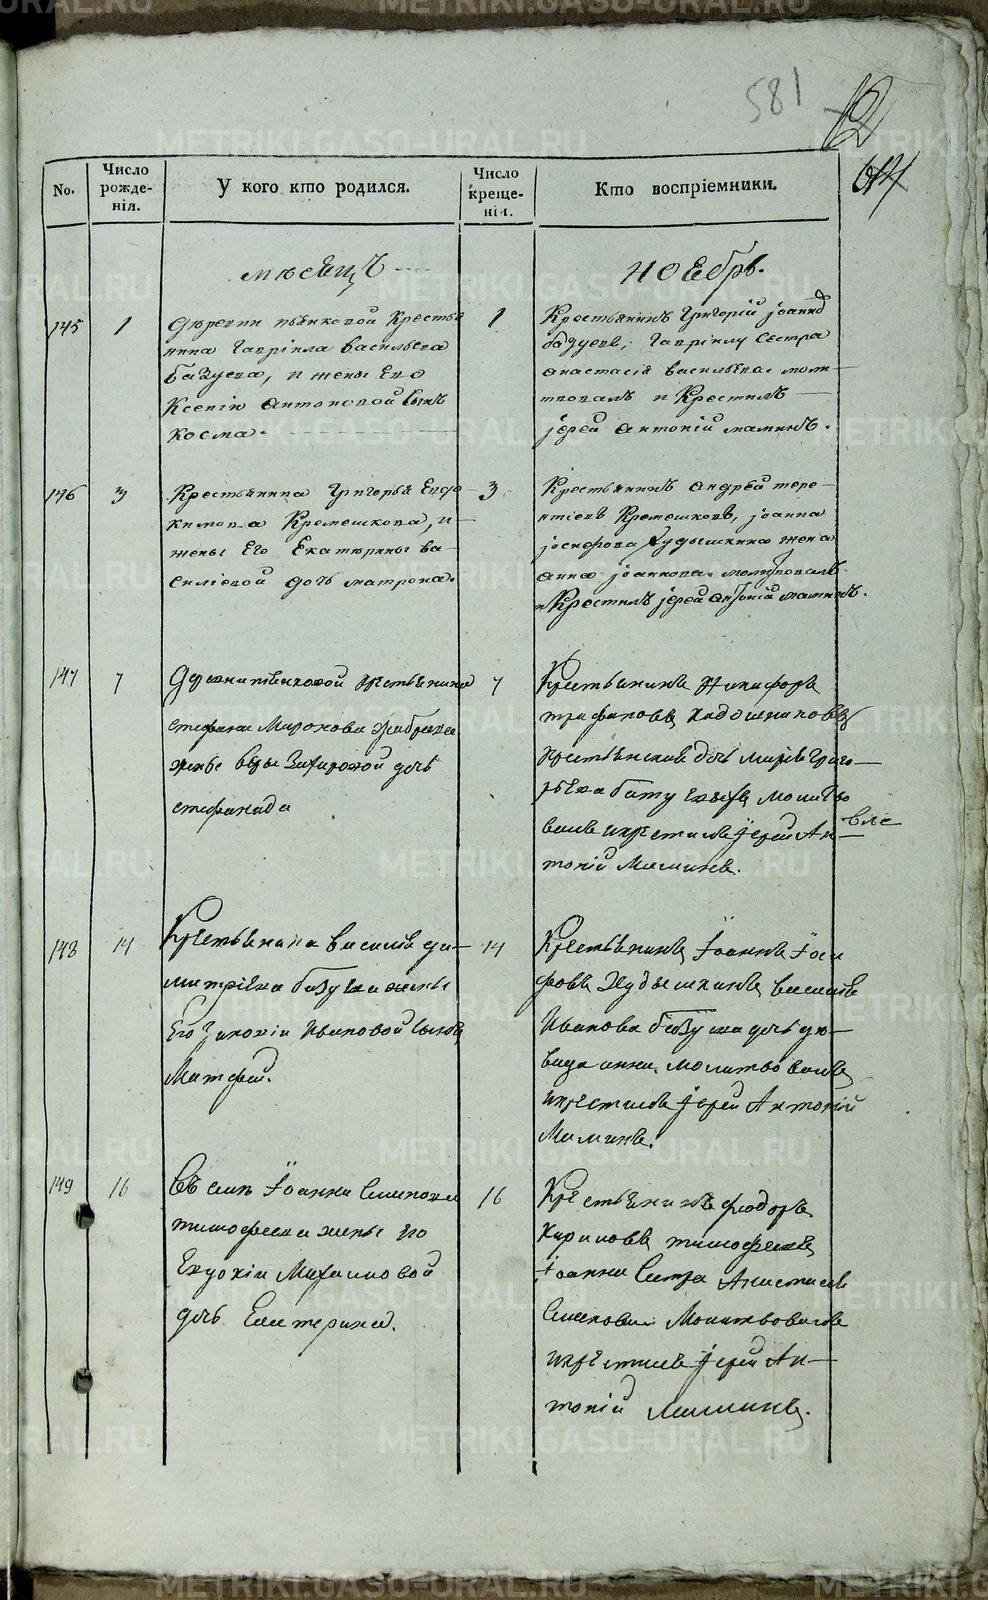 581
No.
Число рожде-нія.
У кого кто родился.
Число креще-нія.
Кто воспріемники.
месяцъ
ноебрь.
145
1
деревни пьянковой Кресть
янина гавріила васильева
базуева, и жены Его
Ксеніи антоновой сынъ
косма.
1
Крестьянинъ григорій јоанновъ
базуевъ, гавріилу сестра
анастасія васильева. моли-
твовалъ и Крестилъ
јерей антоній маминъ.
146
3
Крестьянина григорья Евдо
кимова Кремешкова, и
жены Его Екатерины ва-
силіевой дочь матрона.
3
Крестьянинъ андрей тере-
нтіевъ Кремешковъ, јоанна
јосифова худышкина жена
анна јоаннова. молитвовалъ
и Крестилъ јерей антоній маминъ.
147
7
Деревни пьянковой крестьянина
стефана Миронова
жены веры Захаровой дочь
стефанида
7
Крестьянинъ Никифоръ
трифановъ
крестьянская дочь марья григо-
рьева молитво
валъ и крестилъ јерей Ан-
тоній Маминъ.
148
14
Крестьянина василія ди-
митріева базуева жены
Его Ивановой сынъ
Матфей.
14
Крестьянинъ Іоаннъ Іоси
фовъ Худышкинъ, василія
Иванова базуева дочь де-
вица анна, молитвовалъ
и крестилъ јерей Антоній
Маминъ.
149
16
Въ селе Іоанна Симанова
тимофеева жены его
Евдокіи Михаиловой
дочь Екатерина.
16
Крестьянинъ федоръ
Кириловъ тимофеевъ,
Іоанна Сестра Анастасія
Симанова Молитвовалъ
и крестилъ јерей Ан-
тоній Маминъ.